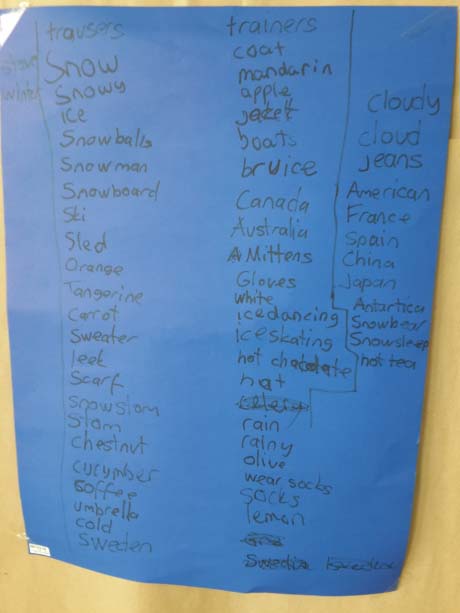 trausers
Snow
Snowy
winter
ice
Snowballs
Snowman
Snowboard
Ski
Sled
Orange
Tangerine
Carot
Sweater
leek
Scarf
snowstom
Stom
Chestnut
cucumber
coffee
umbrella
cold
Sweden
trainers
coat
mandarin
apple
boats
bruice
Canada
Australia
Mittens
Gloves
white
icedancing
iceskating
hot chacolate
hat
rain
rainy
olive
wear socks
socks
lemon
Cloudy
cloud
jeans
American
France
Spain
China
Japan
Antartica
Snowbear
Snowsleep
hot tea